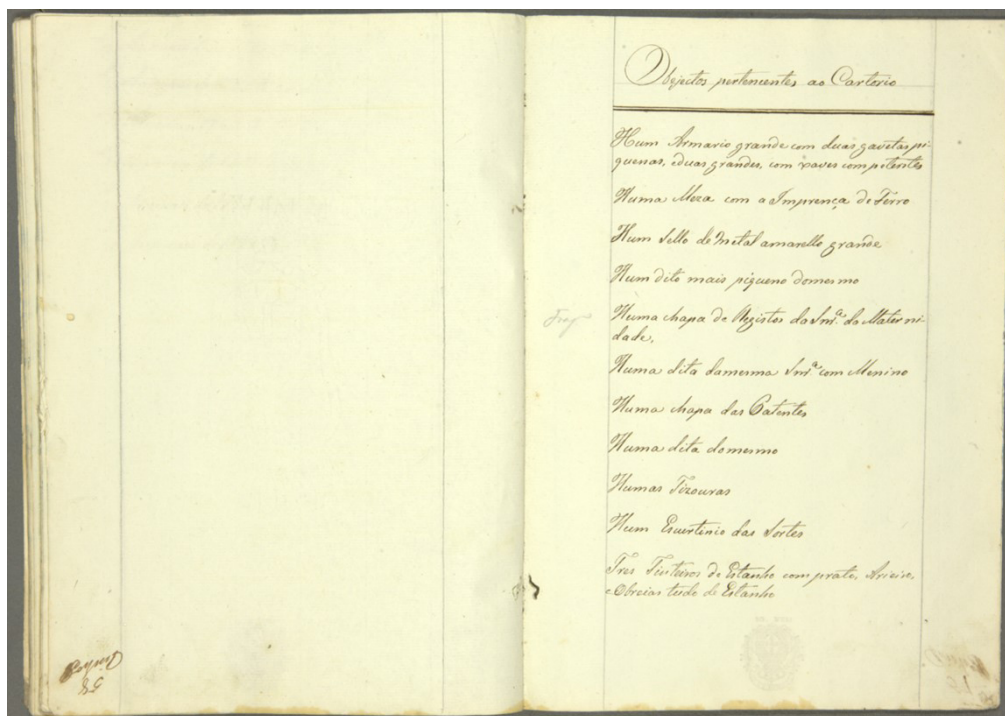 Objectos pertencentes ao Cartorio
Hum Armario grande com duas gavetas pi-
quenas, eduas grandes, com xaves competentes
Huma Meza com a Imprença de Ferro
Hum Sello de Metal amarello grande
Hum dito mais piqueno domesmo
Huma chapa de Registos da Snr.ª da Materni-
dade,
Huma dita damesma Snr.ª com Menino
Huma chapa das Patentes
Huma dita domesmo
Humas Tizouras
Hum Escurtinio das Sortes
Tres Tinteiros de Estanho com prato, Arieiro,
e Obreias tudo de Estanho